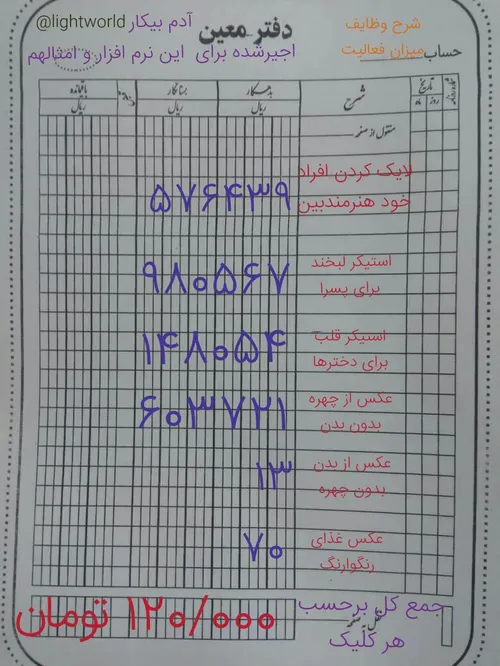 @lightworld آدم بیکار
شرح وظایف
دفتر معین
اجیرشده برای این نرم افزار و امثالهم
میزان فعالیت
حساب
تاریخ
شرح
بدهکار
بستانکار
باقیمانده
روز
ماه
ریال
ریال
ریال
منقول از صفحه
لایک کردن افراد
خود هنرمندبین
۵۷۶۴۳۹
استیکر لبخند
برای پسرا
۹۸۰۵۶۷
استیکر قلب
برای دخترها
۱۴۸۰۵۴
عکس از چهره
بدون بدن
۶۰۳۷۲۱
عکس از بدن
بدون چهره
۱۳
عکس غذای
رنگوارنگ
۷۰
جمع کل برحسب
هر کلیک
۱۲۰/۰۰۰ تومان